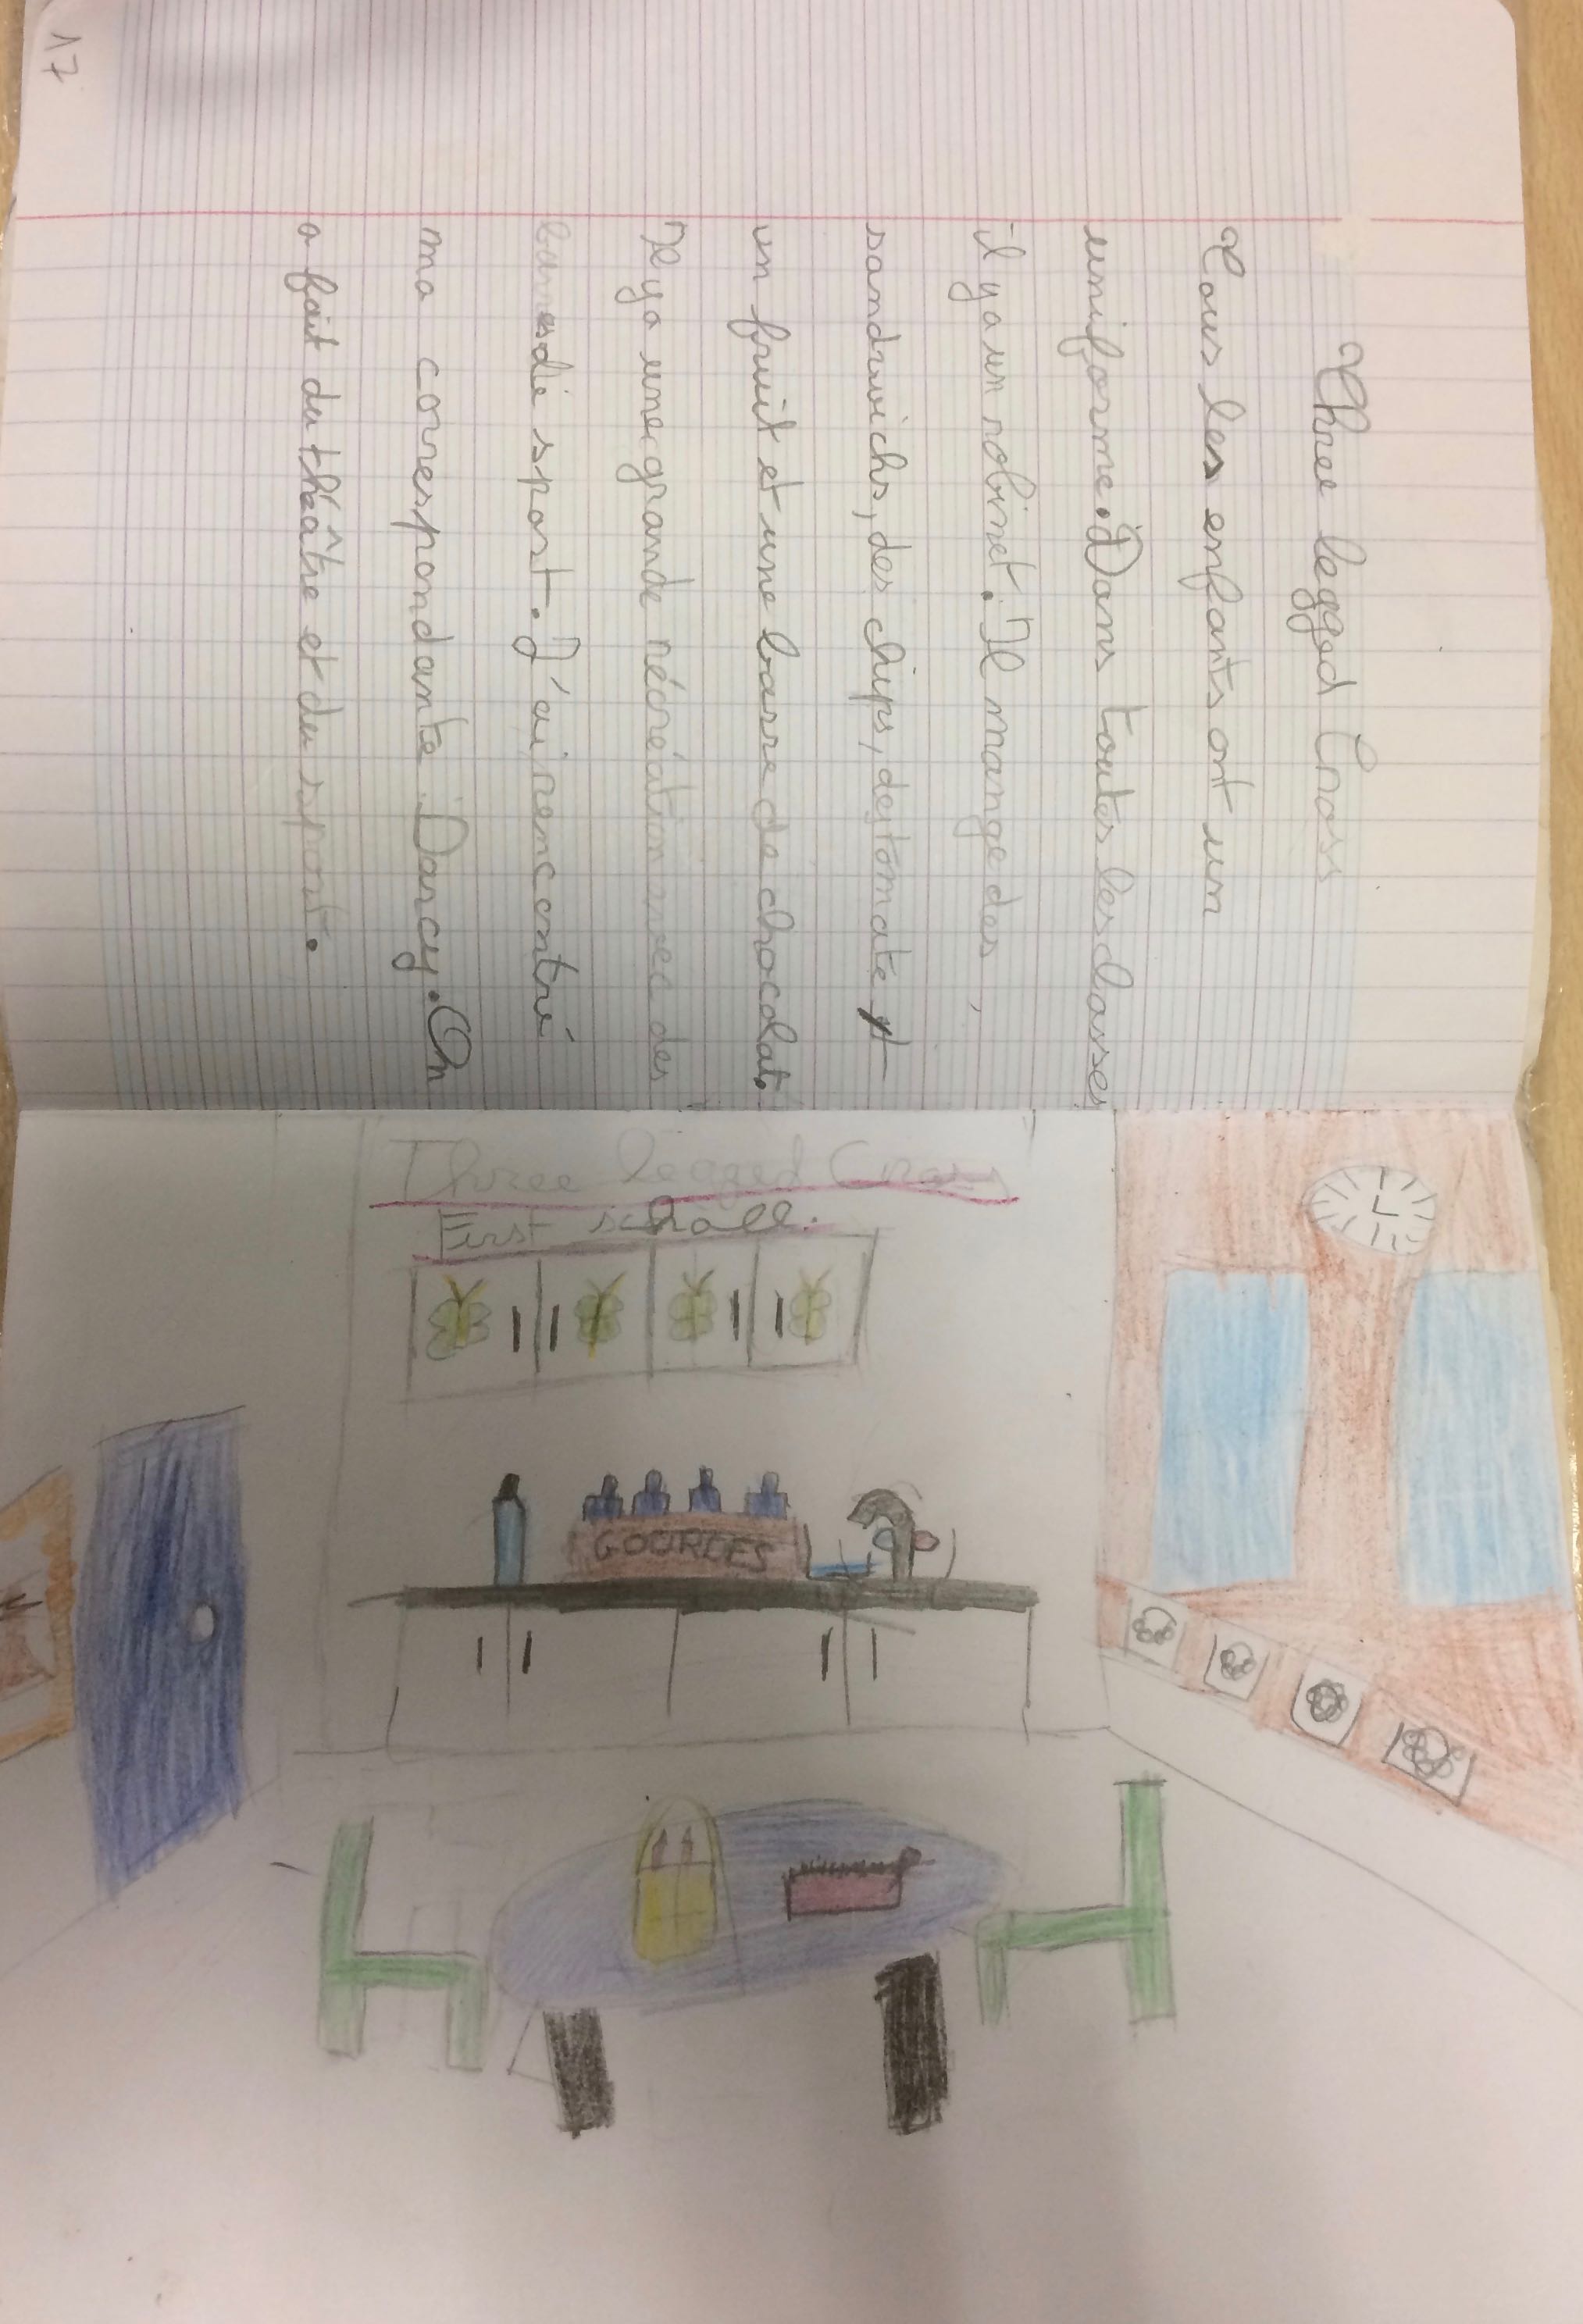 17
Three legged Cross
Tous les enfants ont un
uniforme. Dans toutes les classes
il y a un robinet. Il mange des
sandwichs, des chips, des tomate et
un fruit et une barre de chocolat.
Il y a une grande récréation avec des
barres de sport. J'ai rencontré
ma correspondante Darcy. On
a fait du théâtre et du sport.
Three legged Cross
First scholl.
GOURDES